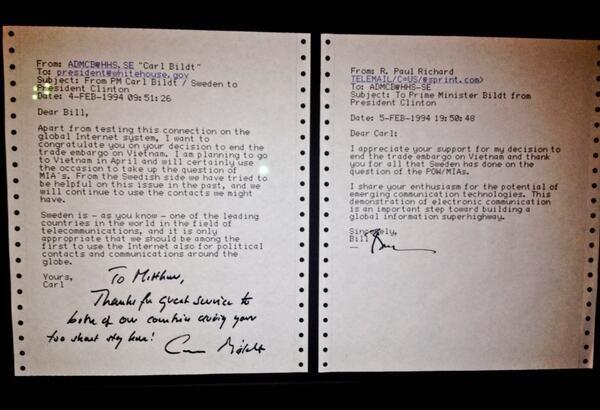 From: ADMCB@HHS.SE "Carl Bildt"
To: president@whitehouse.gov
Subject: From PM Carl Bildt / Sweden to
President Clinton
Date: 4-FEB-1994 09:51:26
Dear Bill,
Apart from testing this connection on the
global Internet system, I want to
congratulate you on your decision to end the
trade embargo on Vietnam. I am planning to go
to Vietnam in April and will certainly use
the occasion to take up the question of
MIA's. From the Swedish side we have tried to
be helpful on this issue in the past, and we
will continue to use the contacts we might
have.
Sweden is - as you know - one of the leading
countries in the world in the field of
telecommunications, and it is only
appropriate that we should be among the
first to use the Internet also for political
contacts and communications around the
globe.
Yours,
Carl
To
Thanks for great service to
both of our countries during your
too short stay here! Carl Bildt
From: R. Paul Richard
TELEMAIL/C=US/@sprint.com>
To: ADMCB@HHS-SE
Subject: To Prime Minister Bildt from
President Clinton
Date: 5-FEB-1994 19:50:48
Dear Carl:
I appreciate your support for my decision to
end the trade embargo on Vietnam and thank
you for all that Sweden has done on the
question of the POW/MIAs.
I share your enthusiasm for the potential of
emerging communication technologies. This
demonstration of electronic communication
is an important step toward building a
global information superhighway.
Sincerely,
Bill